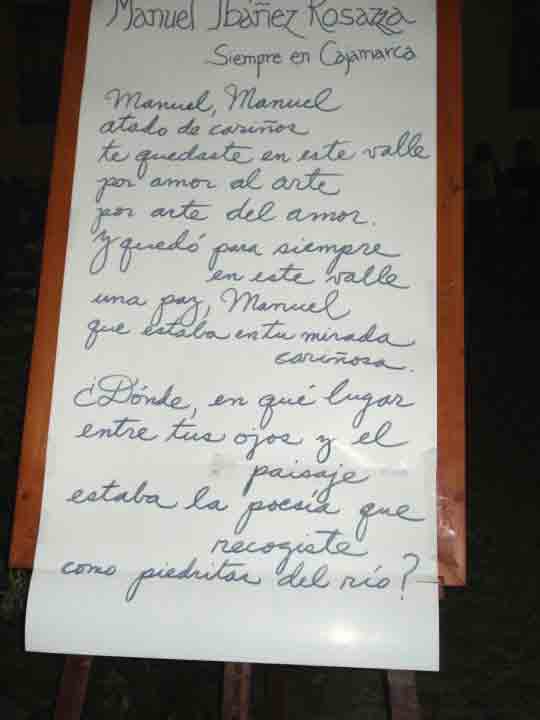 Manuel Ibáñez Rosazza
Siempre en Cajamarca
Manuel, Manuel
atado de cariños
te quedaste en este valle
por amor al arte
por arte del amor.
Y quedó para siempre
en este valle
una paz, Manuel
que estaba en tu mirada
cariñosa.
¿Dónde, en qué lugar
entre tus ojos y el
paisaje
estaba la poesía que
recogiste
como piedritas del río?